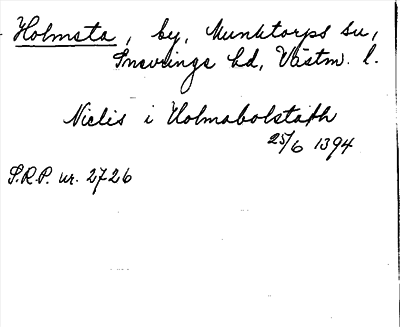 Holmsta, by, Munktorps sn,
Snevringe hd, Västm. l.
Niclis i Holmabolstaþh
25/6 1394
S.R.P. nr. 2726